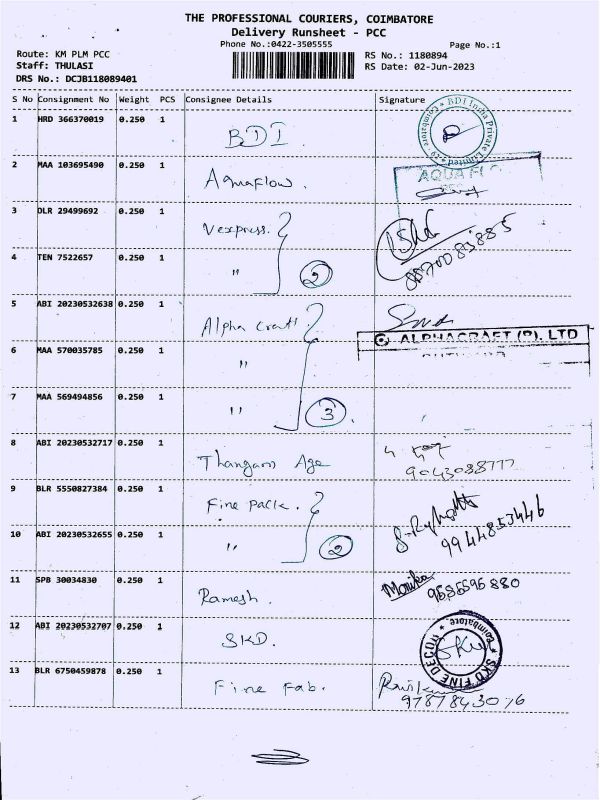 THE PROFESSIONAL COURIERS, COIMBATORE
Delivery Runsheet - PCC
Phone No.:0422-3505555
Page No.:1
Route: KM PLM PCC
Staff: THULASI
DRS No.: DCJB118089401
RS No.: 1180894
RS Date: 02-Jun-2023
S No Consignment No Weight PCS Consignee Details Signature
1 HRD 366370019 0.250 1 BDI
BDI India Private Limited Coimbatore
2 MAA 103695490 0.250 1 Aquaflow.
AQUA
3 DLR 29499692 0.250 1 Vexpress.
4 TEN 7522657 0.250 1 " 2
5 ABI 20230532638 0.250 1 Alpha Craft
ALPHACRAFT (P). LTD
6 MAA 570035785 0.250 1 "
7 MAA 569494856 0.250 1 " 3
8 ABI 20230532717 0.250 1 Thangam Age
9043088777
9 BLR 5550827384 0.250 1 Fine pack.
10 ABI 20230532655 0.250 1 " 2
9944853446
11 SPB 30034830 0.250 1 Ramesh. Monika 9585595880
12 ABI 20230532707 0.250 1 SKD.
SKD FINE DECOR Coimbatore
13 BLR 6750459878 0.250 1 Fine Fab.
9787843076